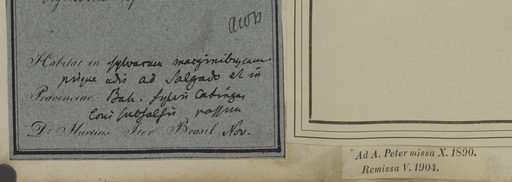 Habitat in sylvarum marginibus, cam-
pisque udis ad Salgado et in
Provinciae Bah. sylvis Catingas
locis subsalsis passim
Dr. Martius Iter Brasil. Nov.
Ad A. Peter missa X. 1890.
Remissa V. 1904.